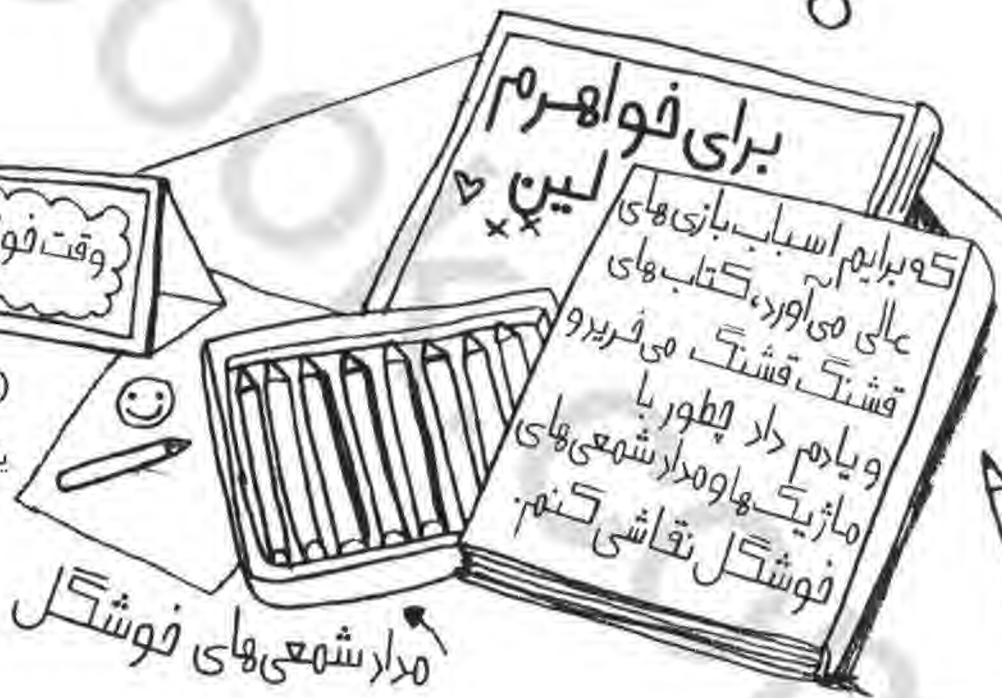 برای خواهرم
لین
که برایم اسباب‌بازی‌های
عالی می‌آورد، کتاب‌های
قشنگ قشنگ می‌خرید و
و یادم داد چطور با
ماژیک‌ها و مداد شمعی‌های
خوشگل نقاشی کنم.
وقت
مداد شمعی‌های خوشگل